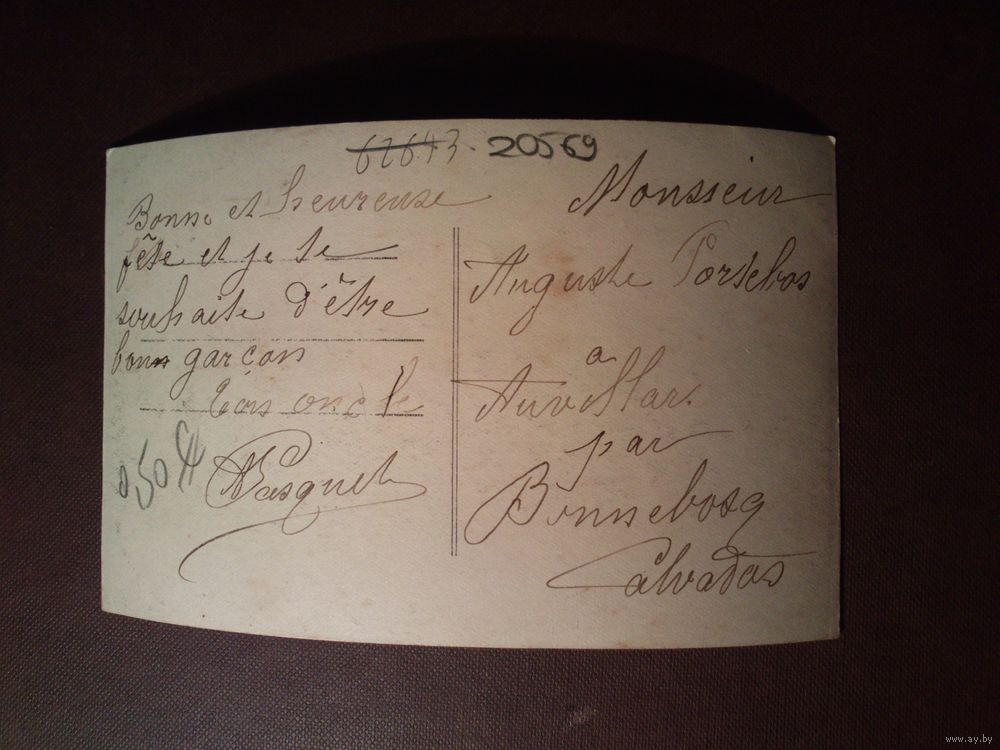 62643. 20569
Bonne et heureuse
fête et je te
souhaite d'être
bon garçon
Ton oncle
Pasquet
050
Monsieur
Auguste Portebos
a
Auvillar
par
Bonnebosq
Calvados
www.ay.by